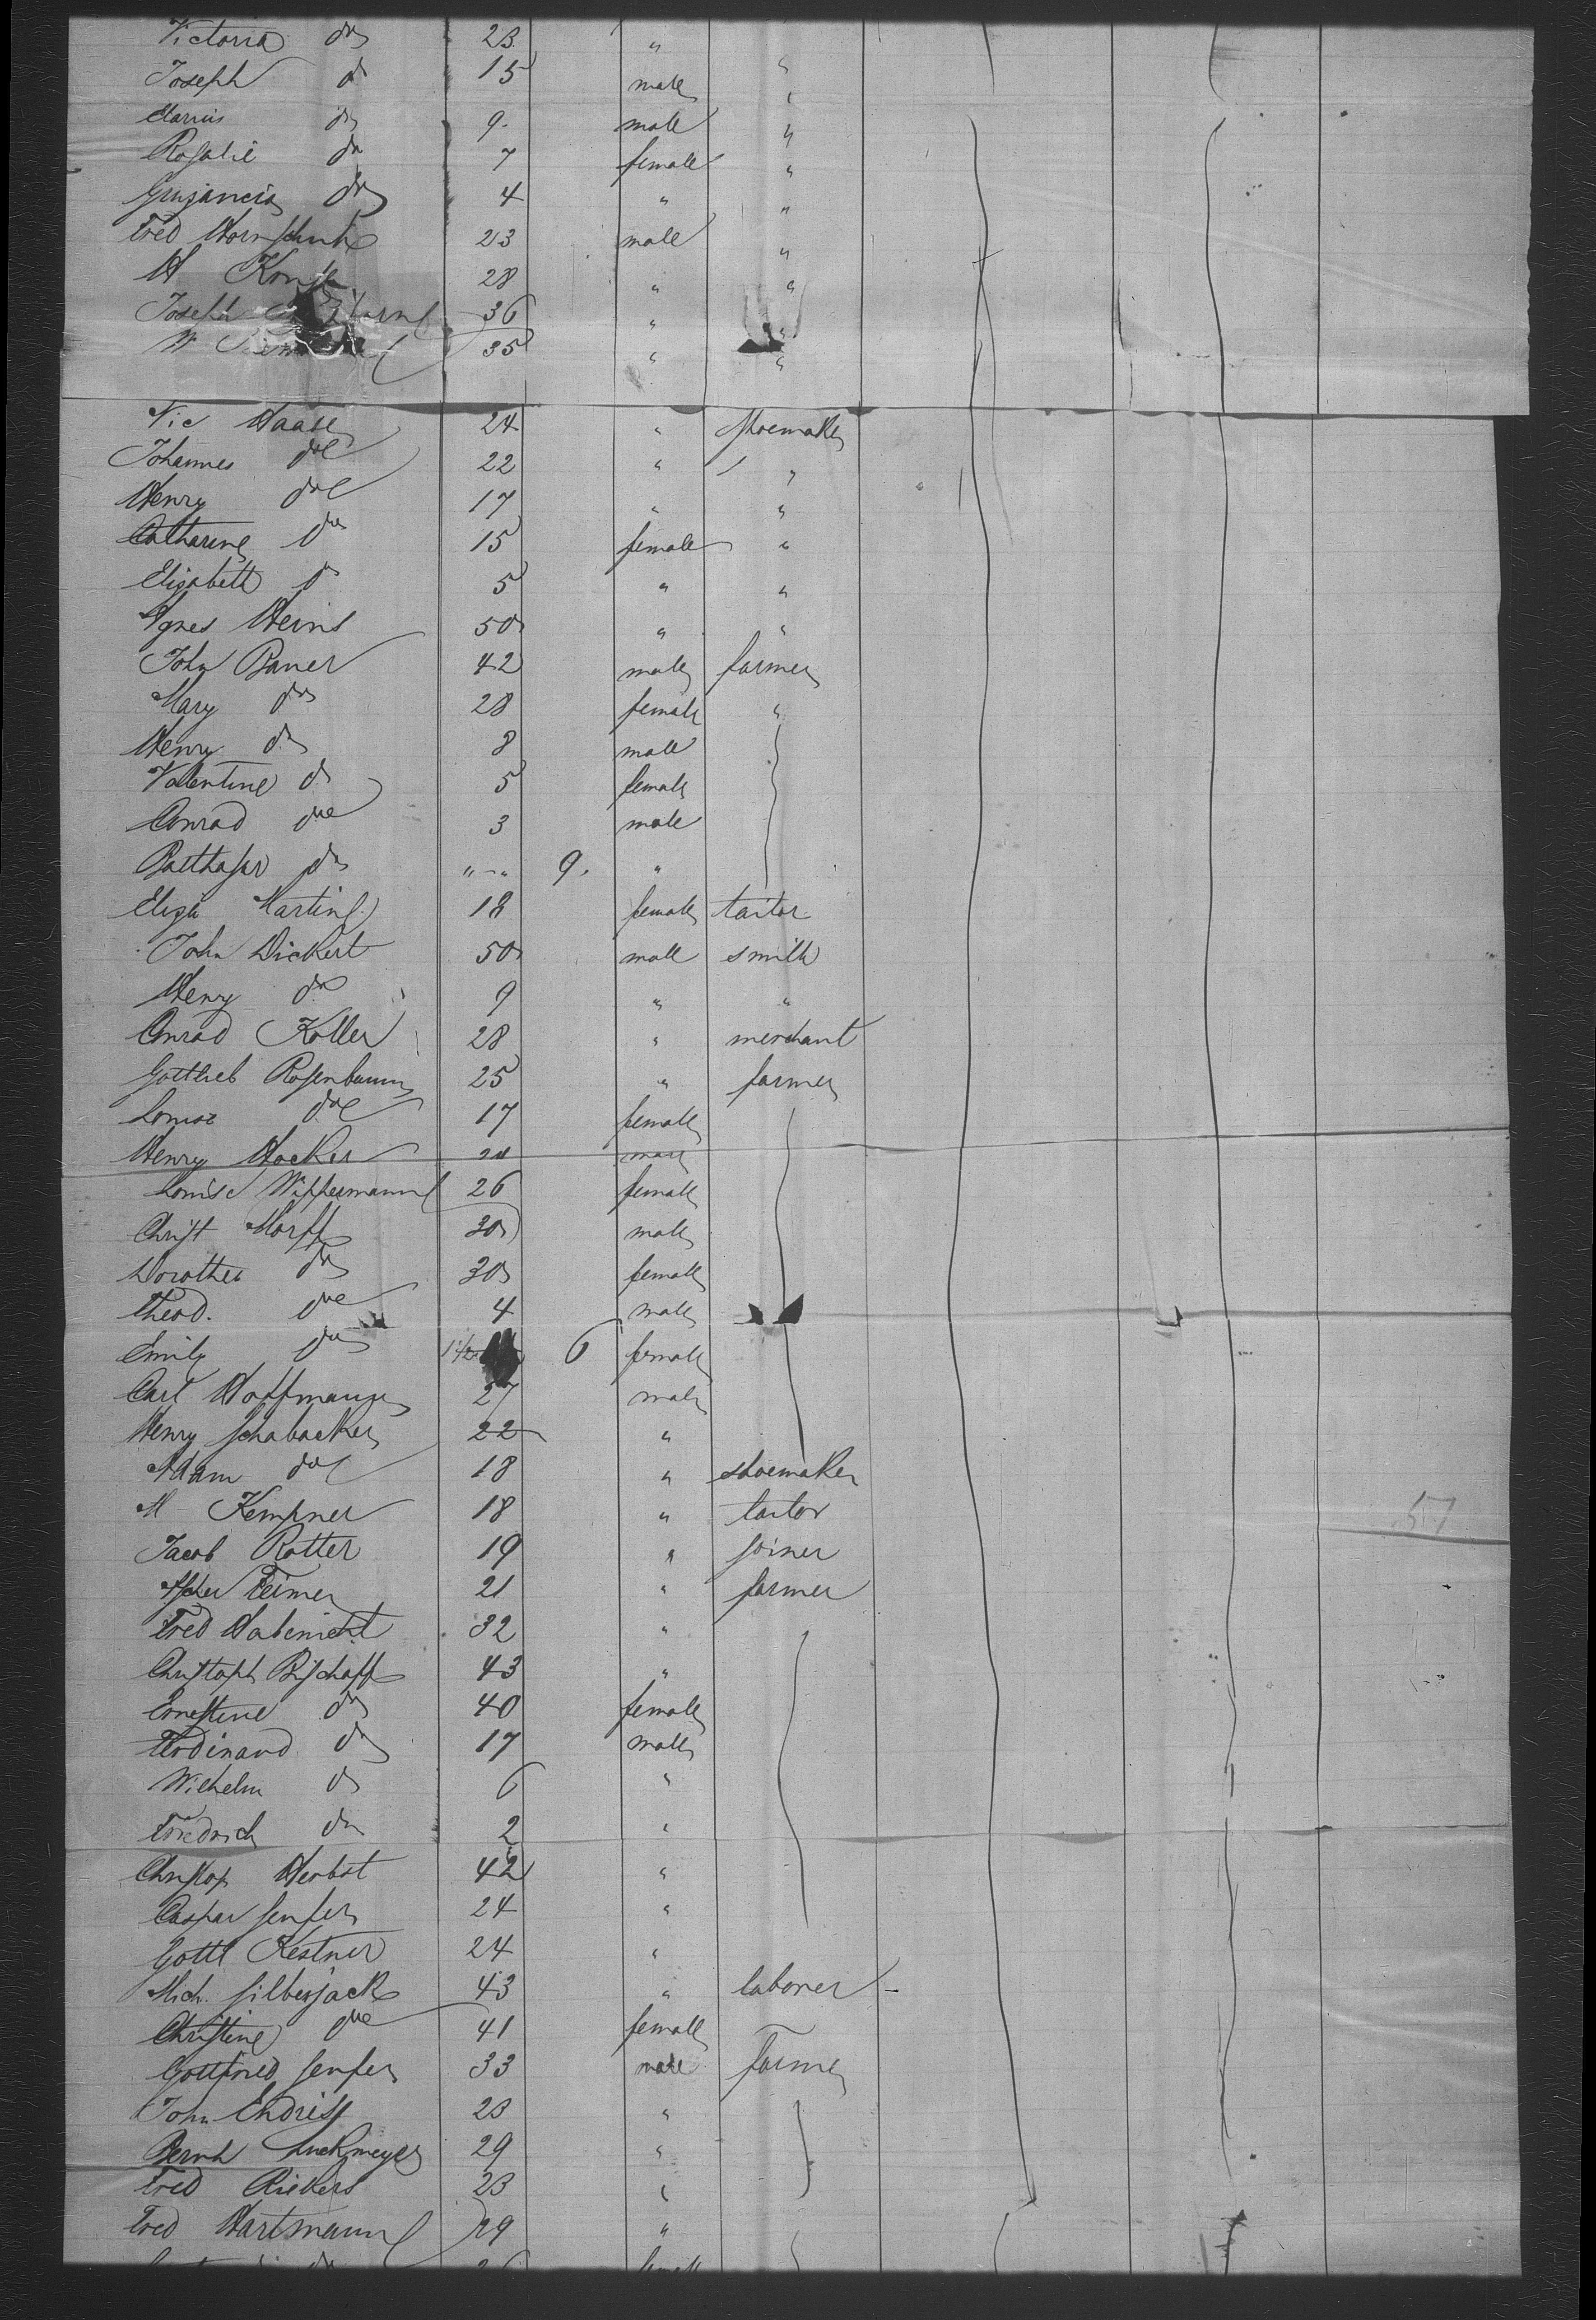 Victoria do 23 "
Joseph do 15 male "
Marius do 9 male "
Rosalie do 7 female "
do 4 " "
Fred Hornschuh 23 male "
H 28 " "
Joseph 36 " "
W 35 " "
Nic Haase 24 " shoemaker
Johannes do 22 " "
Henry do 17 " "
Catharine do 15 female "
Elisabeth do 5 " "
Agnes Heins 50 " "
John Bauer 42 male farmer
Mary do 28 female "
Henry do 8 male
Valentine do 5 female
Conrad do 3 male
Balthasar do " - " 9. "
Eliza Martin 18 female tailor
John Dickert 50 male smith
Henry do 9 " "
Conrad Koller 28 " merchant
Gottlieb Rosenbaum 25 " farmer
Louise do 17 female
Henry Hocker 24 male
Louise Wippermann 26 female
Christ Morff 30 male
Dorothea do 30 female
Theod. do 4 male
Emily do 1 1/2 6 female
Carl Hoffmann 27 male
Henry Schabacker 22 "
Adam do 18 " shoemaker
M Kempner 18 " tailor
Jacob Rotter 19 " joiner
Teimer 21 " farmer
Fred Habenicht 32 "
Christoph Bischoff 43 "
Ernestine do 40 female
Ferdinand do 17 male
Wilhelm do 6 "
Friedrich do 2 "
Christop Herbst 42 "
Caspar Senfer 24 "
Gottl Kestner 24 "
Mich. Silbersack 43 " laborer -
Christine do 41 female
Gottfried Senfer 33 male farmer
John Endriss 23 "
Bernh Luckmeyer 29 "
Fred Riekers 23 "
Fred Hartmann 29 "
do 26 female
57